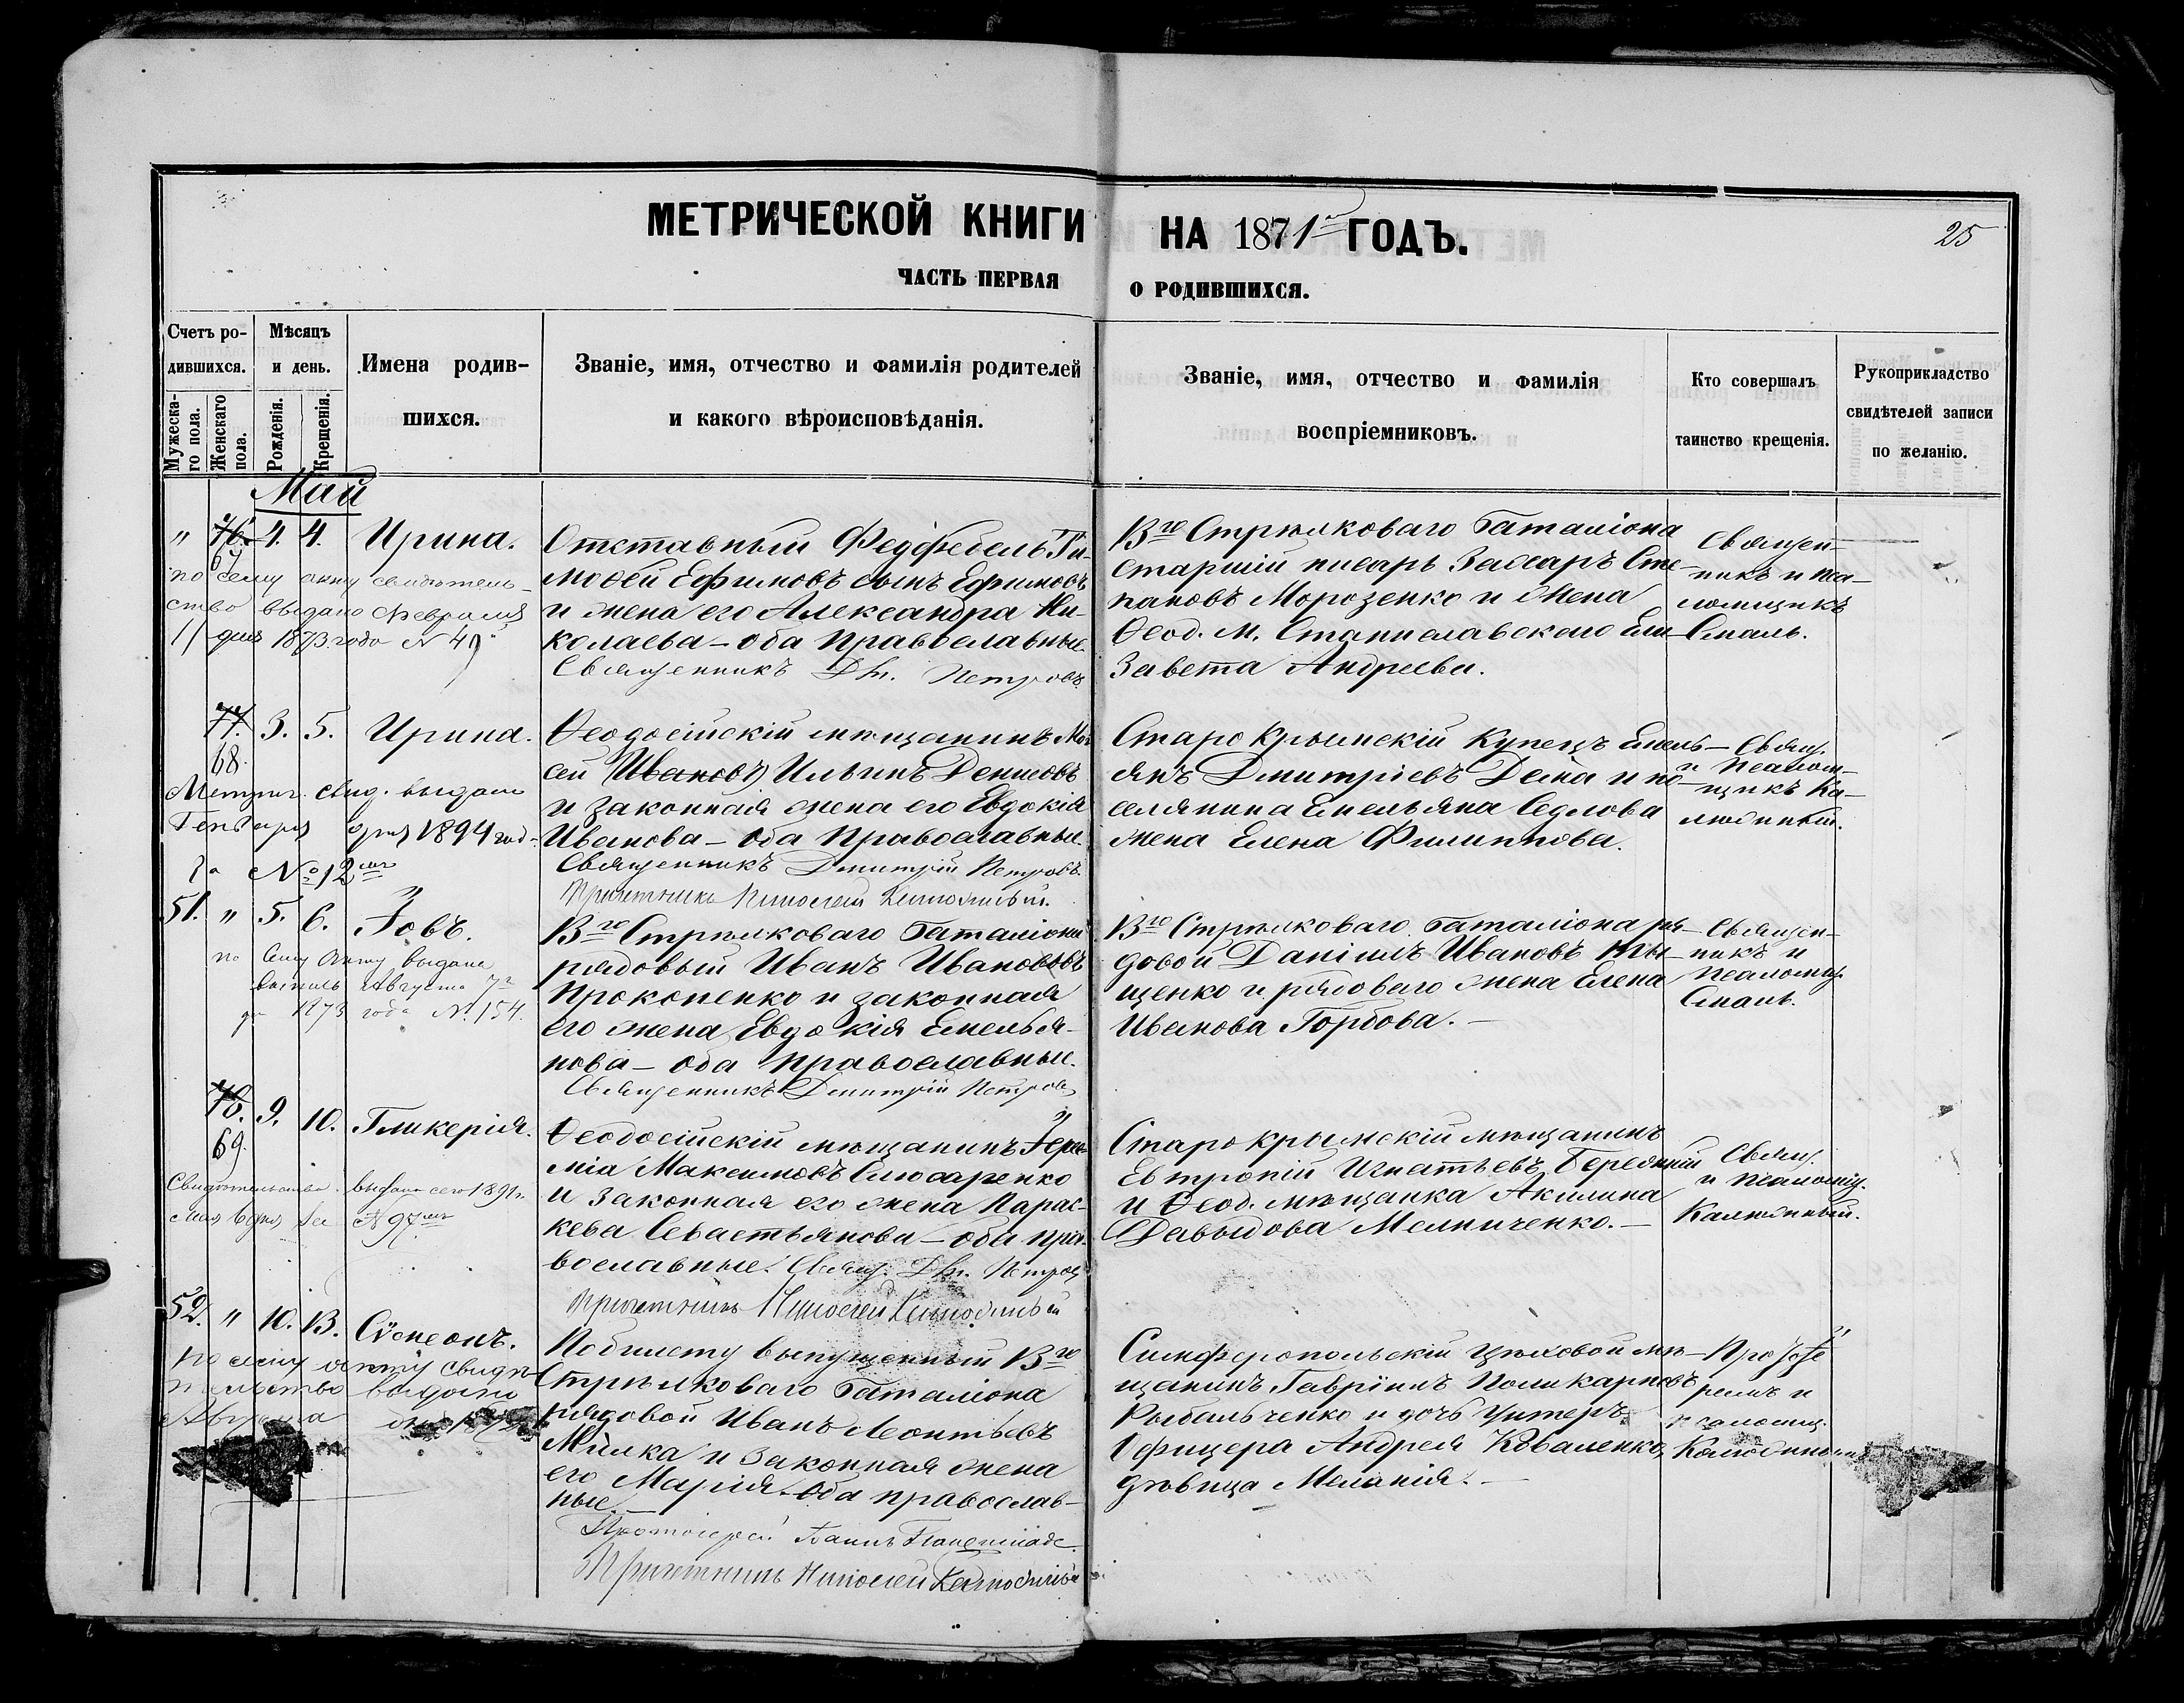 МЕТРИЧЕСКОЙ КНИГИ НА 1871й ГОДЪ.
25
ЧАСТЬ ПЕРВАЯ О РОДИВШИХСЯ.
Счетъ родившихся.
Мужеска-
го пола.
Женскаго
пола.
Мѣсяцъ
и день.
Рожденія.
Крещенія.
Имена родив-
шихся.
Званіе, имя, отчество и фамилія родителей
и какого вѣроисповѣданія.
Званіе, имя, отчество и фамилія
воспріемниковъ.
Кто совершалъ
таинство крещенія.
Рукоприкладство
свидѣтелей записи
по желанію.
Май
" 76. 67 4. 4. Ирина.
по сему акту свидѣтель-
ство выдано Февраля
11 дня 1873 года N 49
Отставный Федфебель Ти-
моѳей Ефимовъ сынъ Ефимовъ
и жена его Александра Ни-
колаева – оба православные.
Священникъ Дм. Петровъ.
13го Стрѣлковаго Баталіона
старшій писарь Захаръ Сте-
пановъ Морозенко и жена
Ѳеод. м. Станиславскаго Ели-
завета Андреева.
Священ-
никъ и пса-
ломщикъ
Смаль.
77. 68. 3. 5. Ирина.
Метрич. свид. выдано
Генваря дня 1894 год-
за No 12мъ
Ѳеодосійскій мѣщанинъ Мои-
сей Ивановъ Ильинъ Денисовъ
и законная жена его Евдокія
Иванова – оба православные.
Священникъ Дмитрій Петровъ.
Причетникъ Николай
Старокрымскій Купецъ Емель-
янъ Дмитріевъ Дейна и по-
селянина Емельяна Седлова
жена Елена Филиппова.
Свящ.
и псалом-
щикъ Ка-
людный.
51. " 5. 6. Іовъ.
по сему акту выдана
выпись Августа 7го
дня 1873 года N. 154.
13го Стрѣлковаго Баталіона
рядовый Иванъ Ивановъ
Прокопенко и законная
его жена Евдокія Емелья-
нова – оба православные.
Священникъ Дмитрій Петровъ
13го Стрѣлковаго Баталіона ря-
довой Даніилъ Ивановъ
щенко и рядоваго жена Елена
Иванова Горбова. –
Священ-
никъ и
псаломщ.
Смаль.
78. 69. 9. 10. Гликерія.
Свидѣтельство выдано сего 1891 г.
Мая 6 дня за N 97мъ
Ѳеодосійскій мѣщанинъ Іере-
мія Максимовъ Слюсаренко
и законная его жена Парас-
кева Севастьянова – оба пра-
вославные. Свящ. Дм. Петровъ
Причетникъ Николай
Старокрымскій мѣщанинъ
Евтропій Игнатьевъ Бережный
и Ѳеод. мѣщанка Акилина
Давыдова Мельниченко. –
Свящ.
и псаломщ.
Калюжный.
52. " 10. 13. Сѵмеонъ.
По сему акту свидѣ-
тельство выдано
Августа дня 1872
По билету выпущенный 13го
Стрѣлковаго Баталіона
рядовой Иванъ Леонтьевъ
Милка и законная жена
его Марія – оба православ-
ные.
Протоіерей
Причетникъ Николай
Симферопольскій цѣховой мѣ-
щанинъ Гавріилъ Поликарповъ
Рыбальченко и дочь Унтеръ-
Офицера Андрея Коваленко,
дѣвица Меланія. –
Протоіе-
рей и
псаломщ.